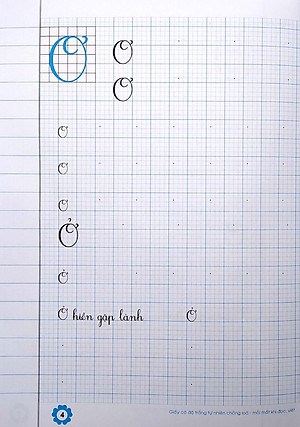 Ơ Ơ
Ơ
Ơ
Ơ
Ơ
Ở
Ở
Ở hiền gặp lành Ở
4 Giấy có độ trắng tự nhiên chống loá - mỏi mắt khi đọc, viết